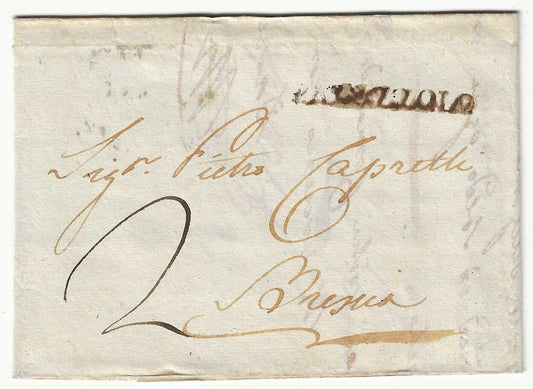 Sig.r Pietro Capretti
2
Brescia